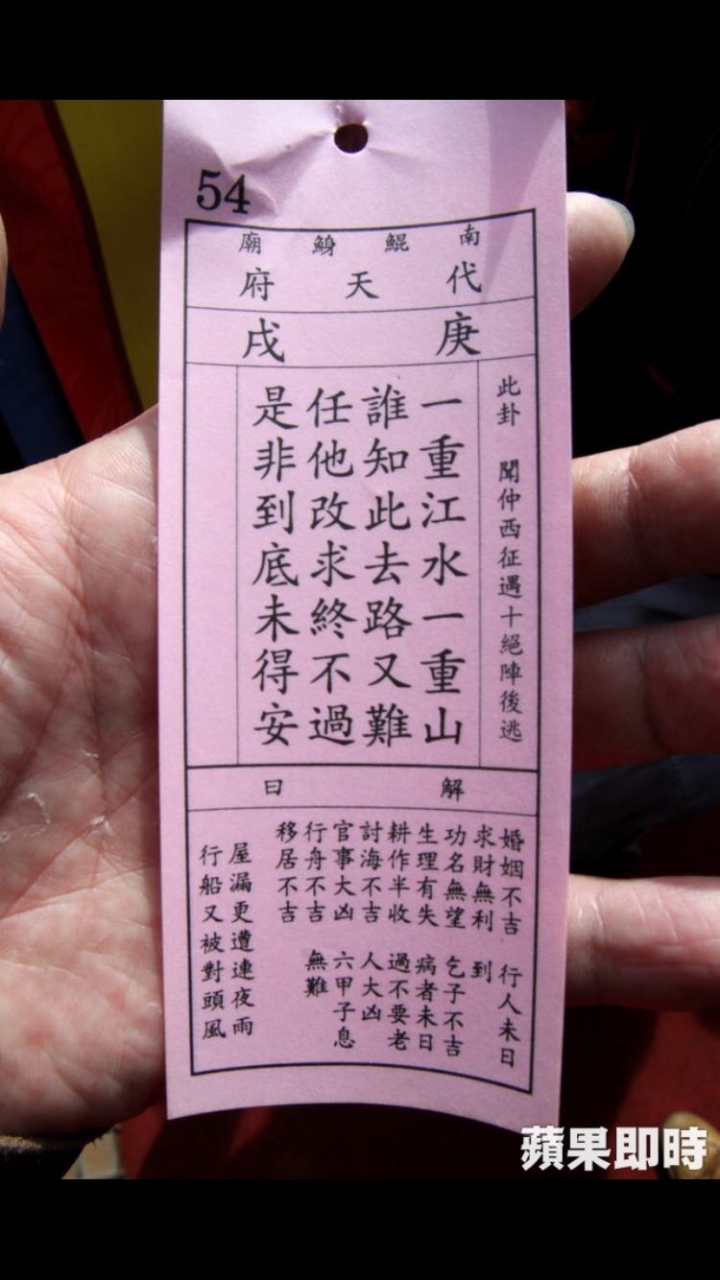 54
南鯤鯓廟
代天府
庚戌
此卦 聞仲西征遇十絕陣後逃
一重江水一重山
誰知此去路又難
任他改求終不過
是非到底未得安
解曰
婚姻不吉 行人未日
求財無利 到
功名無望 乞子不吉
生理有失 病者未日
耕作半收 過不要老
討海不吉 人大凶
官事大凶 六甲子息
行舟不吉 無難
移居不吉
屋漏更遭連夜雨
行船又被對頭風
蘋果即時